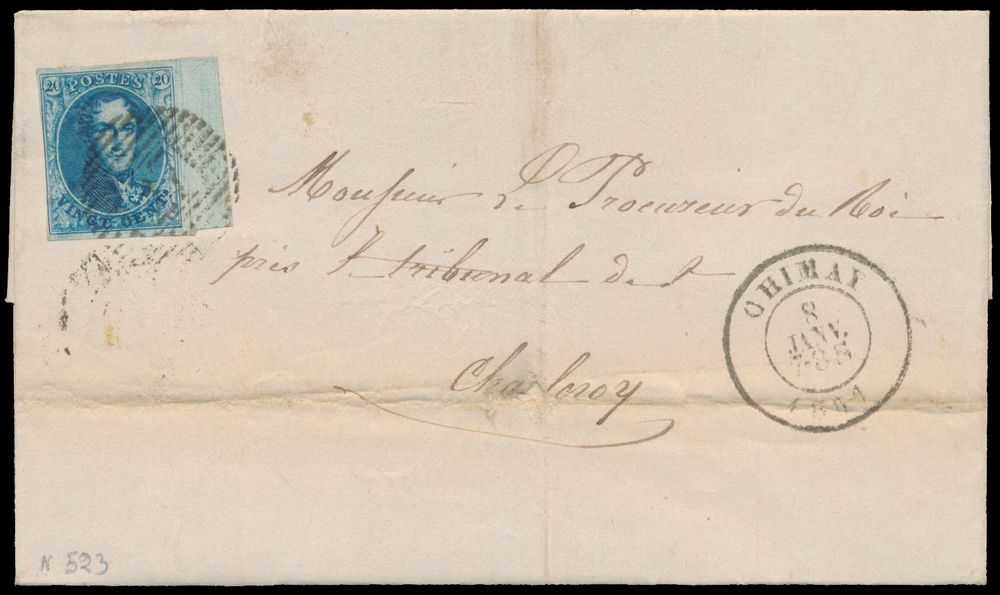 20 POSTES 20
VINGT CENTS.
Monsieur le Procureur du Roi
près le tribunal de et
Charleroy
CHIMAI
8
JANV.
N 523